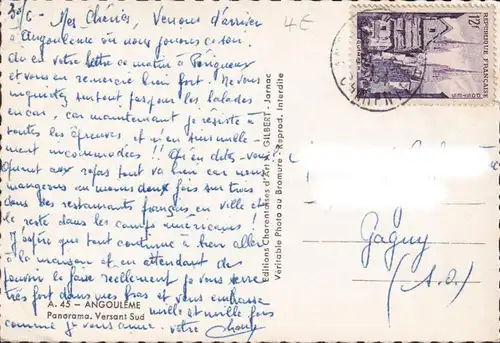 20/6 - Mes Chéries, Venons d'arriver
à Angoulême où nous ferons ce soir.
Ai eu votre lettre ce matin à Périgueux
et vous en remercie bien fort. Ne vous
inquiétez surtout pas pour les balades
en car, car maintenant je résiste à
toutes les épreuves et n'en suis nulle-
ment incommodée !! Qu'en dites-vous
Quant aux repas tout va bien car nous
mangeons au moins deux fois sur trois
dans des restaurants français en ville et
le reste dans les camps américains !
J'espère que tout continue à bien aller
à la maison et en attendant de
pouvoir le faire réellement je vous serre
très fort dans mes bras et vous embrasse
mille et mille fois
comme je vous aime. Votre
4 E
A. 45 - ANGOULÊME
Panorama. Versant Sud
Editions Charentaises d'Art M. GILBERT - Jarnac
Véritable Photo au Bromure - Reprod. Interdite
12F
REPUBLIQUE FRANÇAISE
Gagny
(S. O.)